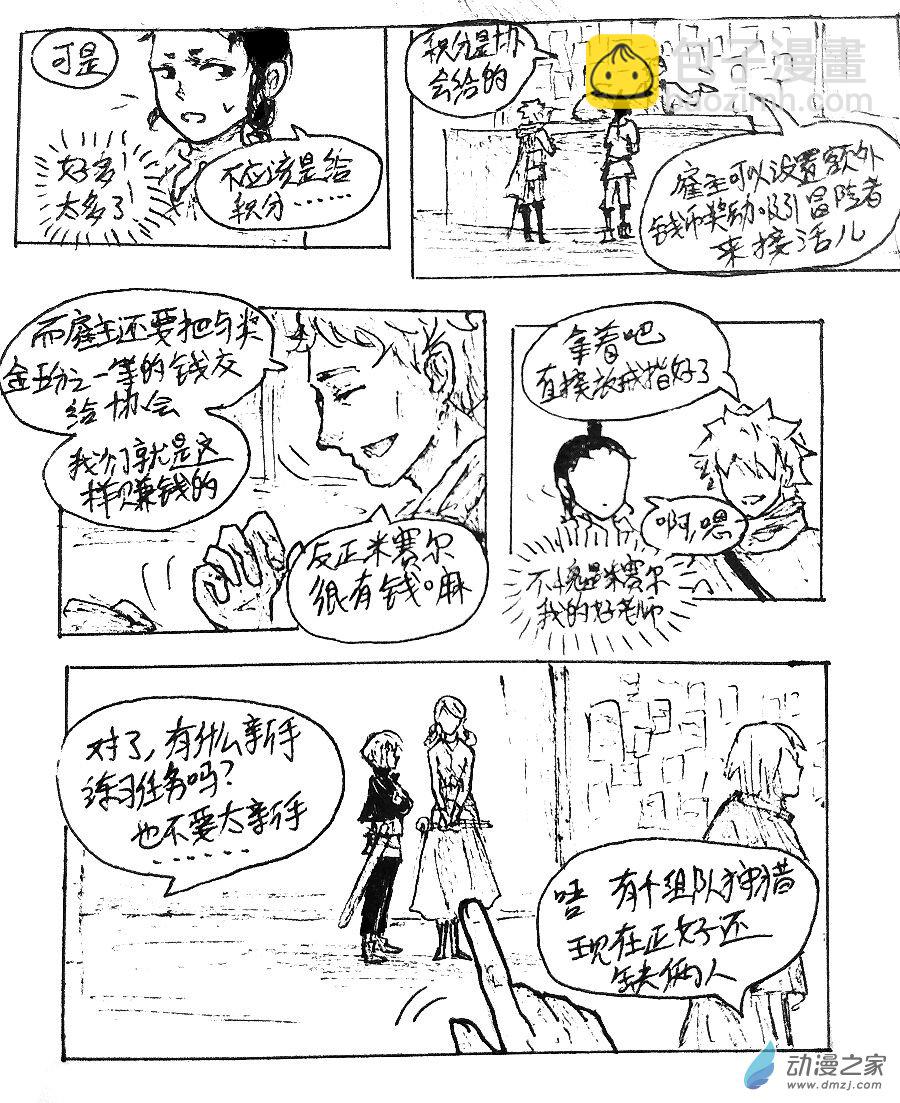 可是
好多
太多了
不应该是给
积分……
积分是协
会给的
包子漫畫
baozimh.com
雇主可以设置额外
钱币奖励吸引冒险者
来接活儿
而雇主还要把与奖
金五分之一等的钱交
给协会
我们就是这
样赚钱的
反正米赛尔
很有钱。嘛
拿着吧
直接放戒指好了
啊,嗯
不愧是米赛尔
我的好老师
对了,有什么新手
练习任务吗?
也不要太新手
……
唔 有个组队狩猎
现在正好还
缺俩人
动漫之家
www.dmzj.com